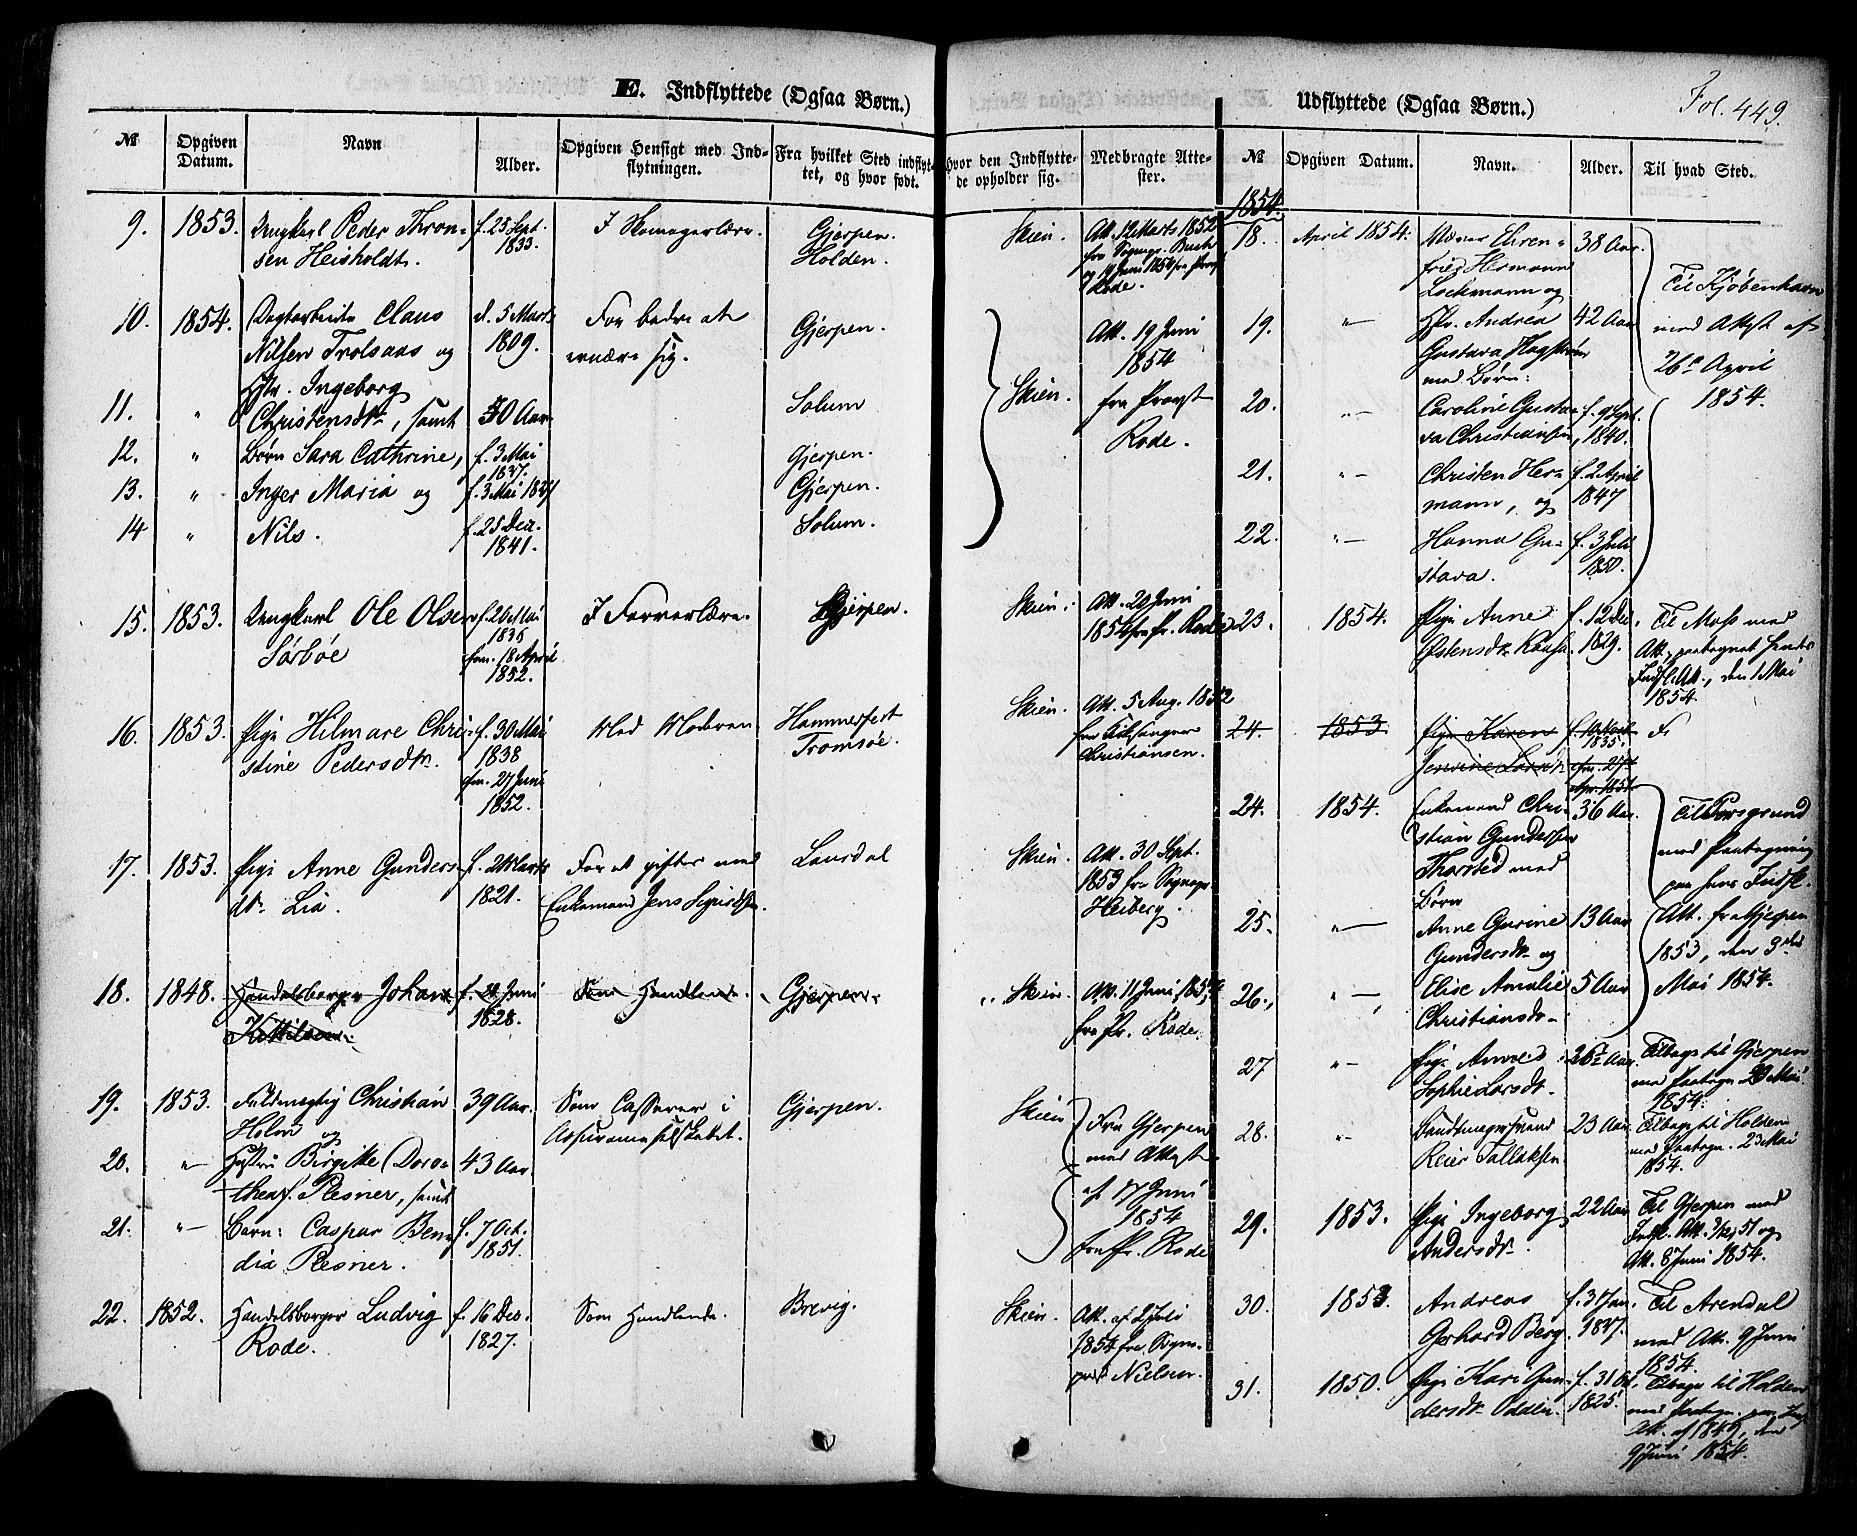 E. Indflyttede (Ogsaa Børn.)
№
Opgiven Datum.
Navn
Alder.
Opgiven Hensigt med Indflytningen.
Fra hvilket Sted indflyttet, og hvor født.
Hvor den Indflyttede opholder sig.
Medbragte Attester.
9. 1853. Ungkarl Peder Thron- f. 25 Sept. I Skomagerlære. Gjerpen. Skien. Att. 12 Marts 1852
sen Heisholdt. 1833. Holden. fra Sognepr.
og 19 Juni 1854 fra Provst
Rode.
10. 1854. Dagarbeider Claus d. 5 Marts For bedre at Gjerpen. Att. 19 Juni
Nilsen Trolsaas og 1809. ernære sig. 1854
Hstr. Ingeborg Skien. fra Provst
11. " Christensdtr, samt 50 Aar Solum Rode.
12. " Børn Sara Cathrine, f. 3 Mai 1837. Gjerpen.
13. " Inger Maria og f. 3 Mai Gjerpen.
14 " Nils. f. 25 Dec. 1841. Solum.
15. 1853. Ungkarl Ole Olsen f. 20 Mai I Farverlære. Gjerpen. Skien. Att. 20 Juni
Sørbøe 1836 1854 fra Pr. Rode
fm. 18 April
1852.
16. 1853. Pige Hilmare Chri- f. 30 Mai Med Moderen Hammerfest Skien. Att. 5 Aug. 1852
stine Pedersdtr. 1838 Tromsøe. fra Kirkesanger
fm. 27 Juni Christiansen.
1852.
17. 1853. Pige Anne Gunders- f. 2 Marts For at giftes med Laurdal Skien. Att. 30 Sept.
dtr. Lia. 1821. Enkemand Jens Sigurdsen. 1853 fra Sognepr.
Heiberg.
18. 1848. Handelsborger Johan f. 28 Juni Som Handlende. Gjerpen. Skien. Att. 11 Juni 1854
Kittilsen. 1828. fra Pr. Rode
19. 1853. Fuldmægtig Christian 39 Aar. Som Casserer i Gjerpen. Skien Fra Gjerpen
Holm og Assuranceselskabet. med Attest
20. " Hustru Birgitte Doro- 43 Aar. af 17 Juni
thea f. Plesner, samt 1854
21. " Barn: Caspar Ben- f. 7 Oct. fra Pr. Rode
dix Plesner. 1851.
22. 1852. Handelsborger Ludvig f. 16 Dec. Som Handlende. Brevig. Skien. Att. af 2 Juli
Rode. 1827. 1854 fra Sogne-
prest Nielsen.
Fol. 449.
Udflyttede (Ogsaa Børn.)
№
Opgiven Datum.
Navn.
Alder.
Til hvad Sted.
1854.
18. April 1854. Ehren- 38 Aar.
fried Hermann
Lochmann og Til Kjøbenhavn
19. " Hstr. Andrea 42 Aar med Attest af
Gustava Hagstrøm 26de April
med Børn: 1854.
20. " Caroline Gusta- f. 9 Sept.
va Christiansen, 1840.
21. " Christen Her- f. 2 April
mann, og 1847
22. " Hanna Gu- f. 3 Juli
stava. 1850.
23. 1854. Pige Anne f. 12 Dec. Til Moss med
Østensdtr. Kaasa. 1829. Att. paategnet hendes
Indfl. Att., den 1 Mai
1854.
24. 1853 Pige Karen f. 10 1835. F
24. 1854. Enkemand Chri- 36 Aar. Til Porsgrund
stian Gundersen med Paategning
Thorsted med paa hans Indfl.
Børn Att. fra Gjerpen
25. " Anne Gurine 13 Aar 1853, den 3die
Gundersdtr. og Mai 1854.
26. " Elise Amalie 5 Aar
Christiansdtr
27 " Pige 26 Aar. Tilbage til Gjerpen
Sophie Larsdtr. med Paategn. 20 Mai
1854.
28. " 23 Aar. Tilbage til Holden
Reier Tallaksen med Paategn. 23 Mai
1854.
29. 1853. Pige Ingeborg 22 Aar Til Gjerpen med
Andersdtr. Indfl. Att. 51 og
Att. 8 Juni 1854.
30. 1853. Andreas f. 31 Jan. Til Arendal
Gerhard Berg 1837. med Att. 9 Juni
1854.
31. 1850. Pige Kari Gun- f. 31 Oct. Tilbage til Holden
dersdtr. 1825. med Paategn. paa
Att. af 1849, den
9 Juni 1854.